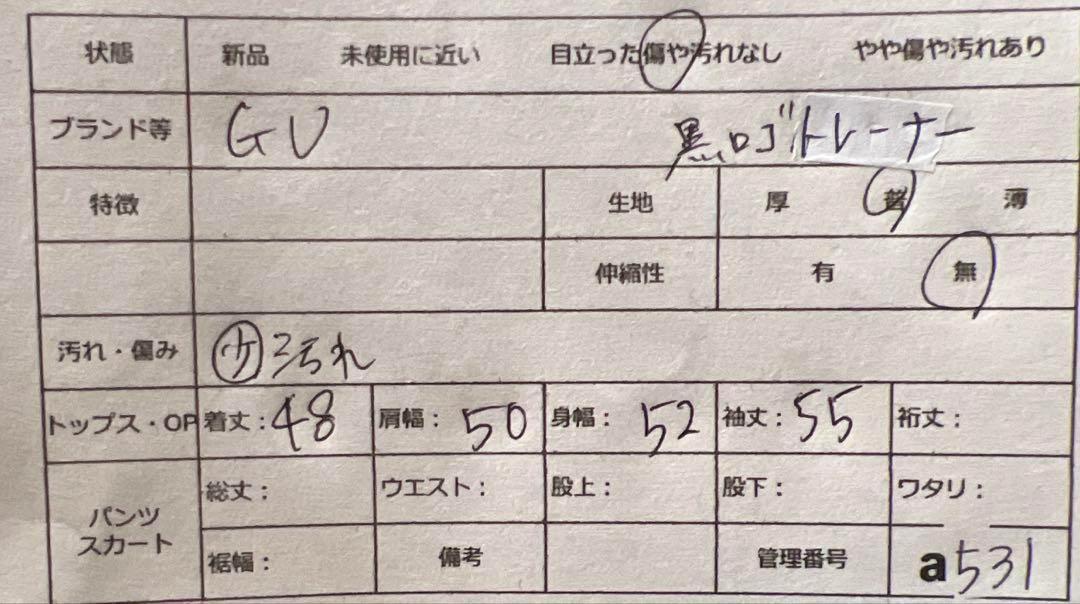 状態 新品 未使用に近い 目立った傷や汚れなし やや傷や汚れあり
ブランド等 GU 黒ロゴトレーナー
特徴 生地 厚 普 薄
伸縮性 有 無
汚れ・傷み 少 汚れ
トップス・OP 着丈：48 肩幅：50 身幅：52 袖丈：55 裄丈：
パンツ スカート 総丈： ウエスト： 股上： 股下： ワタリ：
裾幅： 備考 管理番号 a531